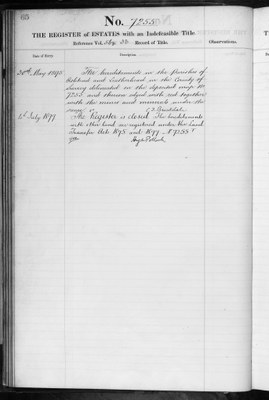 65
No. 7255
THE REGISTER OF ESTATES with an Indefeasible Title.
Reference Vol. Record of Title.
Observations.
Date of Entry.
Description.
20th May 1895
The hereditaments in the Parishes of
and in the County of
Surrey delineated on the deposited map No
7255 and thereon edged with red together
with the mines and minerals under the
same
1st July 1899
The Register is closed The hereditaments
with other land are registered under the Land
Transfer Acts 1875 and 1897